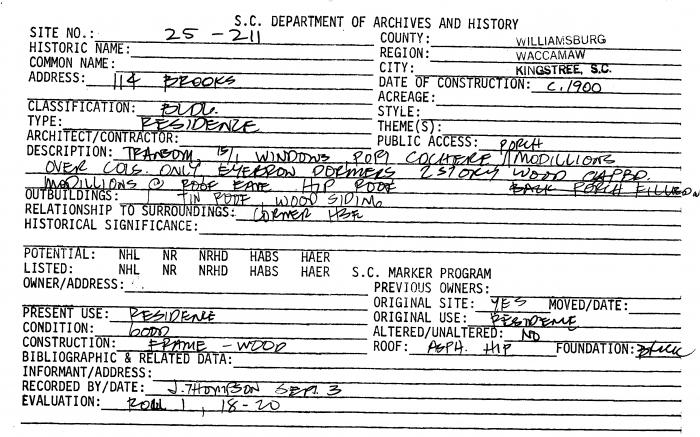 S.C. DEPARTMENT OF ARCHIVES AND HISTORY
SITE NO.: 25 - 211 COUNTY: WILLIAMSBURG
HISTORIC NAME: REGION: WACCAMAW
COMMON NAME: CITY: KINGSTREE, S.C.
ADDRESS: 114 BROOKS DATE OF CONSTRUCTION: C.1900
ACREAGE:
CLASSIFICATION: BLDG. STYLE:
TYPE: RESIDENCE THEME(S):
ARCHITECT/CONTRACTOR: PUBLIC ACCESS: PORCH
DESCRIPTION: TRANSOM 15/1 WINDOWS, PORT COCHERE / MODILLIONS
OVER COLS. ONLY EYEBROW DORMERS 2 STORY WOOD CLAPBD.
MODILLIONS @ ROOF EAVE HIP ROOF BACK PORCH FILLED IN
OUTBUILDINGS: TIN ROOF, WOOD SIDING
RELATIONSHIP TO SURROUNDINGS: CORNER HSE
HISTORICAL SIGNIFICANCE:
POTENTIAL: NHL NR NRHD HABS HAER
LISTED: NHL NR NRHD HABS HAER S.C. MARKER PROGRAM
OWNER/ADDRESS: PREVIOUS OWNERS:
ORIGINAL SITE: YES MOVED/DATE:
PRESENT USE: RESIDENCE ORIGINAL USE: RESIDENCE
CONDITION: GOOD ALTERED/UNALTERED: NO
CONSTRUCTION: FRAME - WOOD ROOF: ASPH. HIP FOUNDATION: BRICK
BIBLIOGRAPHIC & RELATED DATA:
INFORMANT/ADDRESS:
RECORDED BY/DATE: J. THOMPSON SEPT. 3
EVALUATION: ROLL 1, 18-20